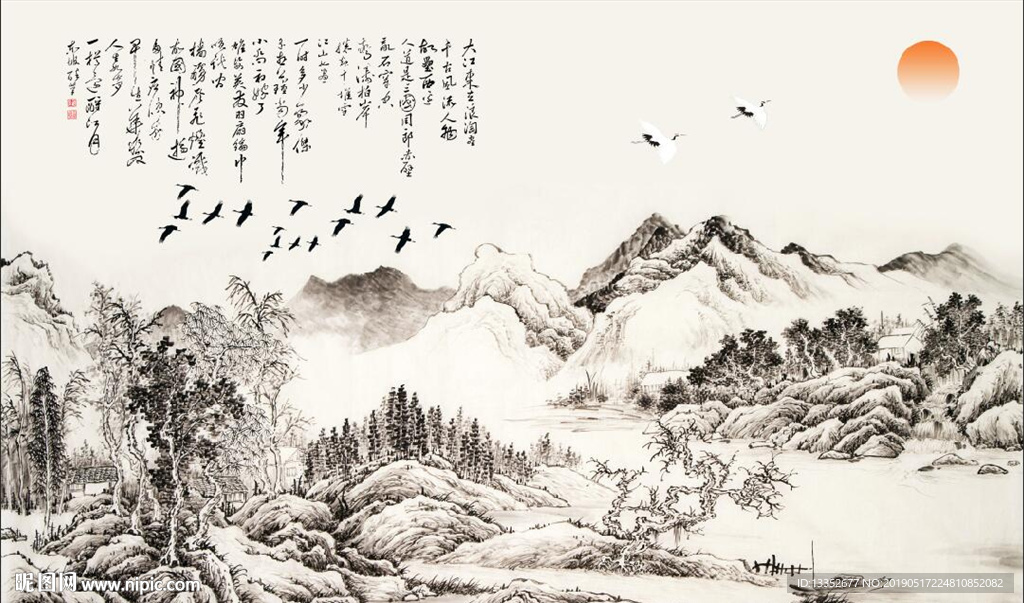 大江東去浪淘尽
千古風流人物
故壘西边
人道是三國周郎赤壁
亂石穿空
驚濤拍岸
捲起千堆雪
江山如畫
一时多少豪傑
遥想公瑾當年
小喬初嫁了
雄姿英发羽扇綸巾
談笑间
檣櫓灰飛煙滅
故國神遊
多情应笑我
早生華髮
人生如梦
一樽还酹江月
昵图网 www.nipic.com
ID:13352677 NO:20190517224810852082